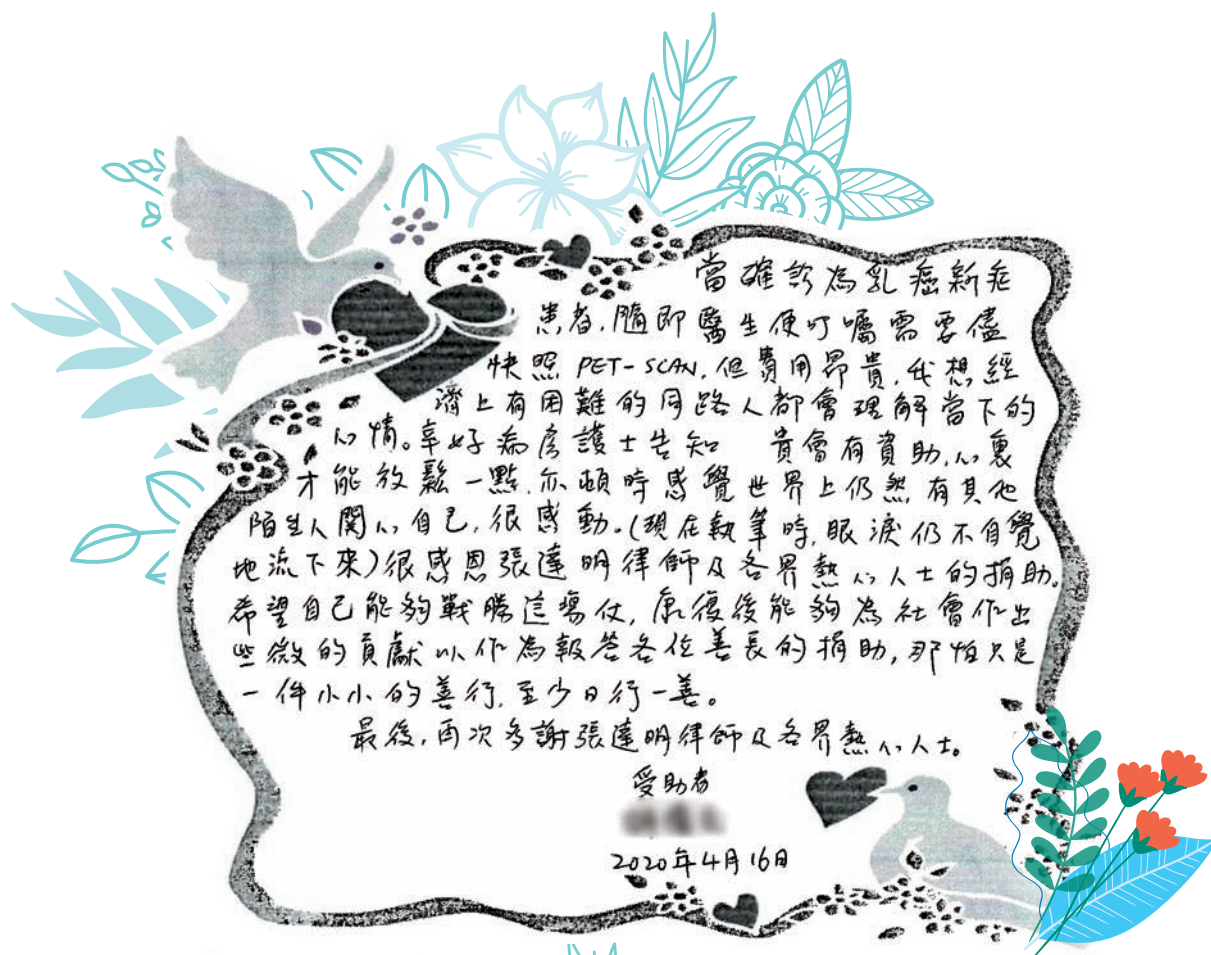 當確診為乳癌新症
患者，隨即醫生便叮囑需要儘
快照 PET-SCAN，但費用昂貴，我想經
濟上有困難的同路人都會理解當下的
心情。幸好病房護士告知　貴會有資助，心裏
才能放鬆一點，亦頓時感覺世界上仍然有其他
陌生人關心自己，很感動。(現在執筆時，眼淚仍不自覺
地流下來)很感恩張達明律師及各界熱心人士的捐助。
希望自己能夠戰勝這場仗，康復後能夠為社會作出
些微的貢獻以作為報答各位善長的捐助，那怕只是
一件小小的善行，至少日行一善。
最後，再次多謝張達明律師及各界熱心人士。
受助者
2020年4月16日